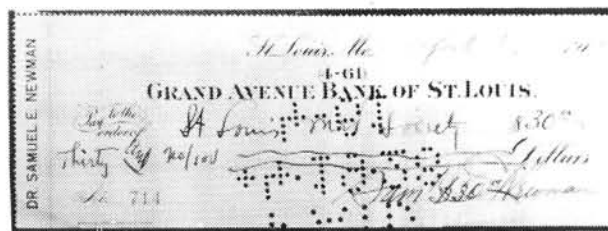 DR. SAMUEL E. NEWMAN
St. Louis, Mo.
(4-61)
GRAND AVENUE BANK OF ST. LOUIS.
Pay to the order of St Louis Society $30
Thirty no/100 Dollars
No. 714
Sam Newman